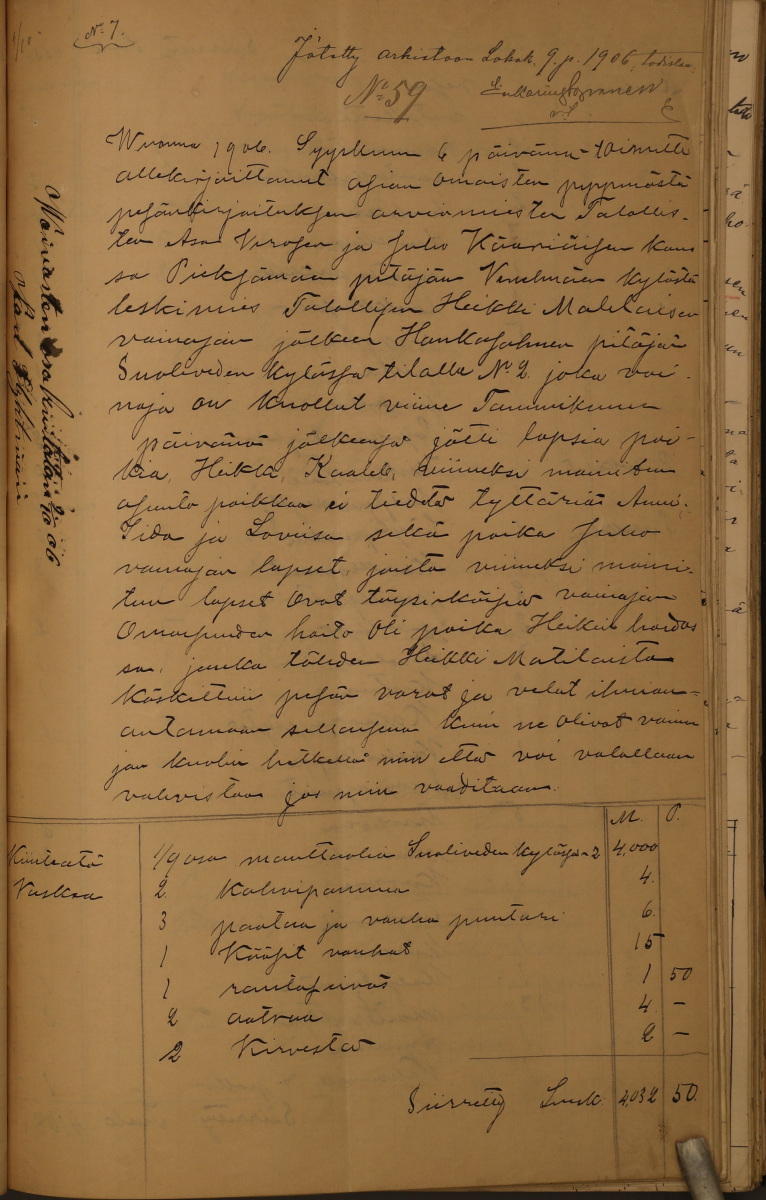 No 7.
Jätetty arkistoon Lokak. 9. p. 1906, todistaa,
No 59
Wuonna 1906. Syyskuun 6 päivänä toimitti
allekirjoittanut asian omaisten pyynnöstä
pesänkirjoituksen arviomiesten Talollis-
ten Asa Verosen ja Juho Kääriäisen kans
sa Pieksämäen pitäjän Venetmäen kylästä
leskimies Talollisen Heikki Matilaisen
vainajan jälkeen Hankasalmen pitäjän
Suoliveden kylässä tilalla No 2. joka vai-
naja on kuollut viime Tammikuun
päivänä jälkeensä jätti lapsia poi-
kia, Heikki, Kaaleb, viimeksi mainitun
asunto paikkaa ei tiedetä tyttäriä Anni,
Iida ja Loviisa sekä poika Juho
vainajan lapset, joista viimeksi maini-
tun lapset ovat täysi-ikäisiä vainajan
Omaisuuden hoito oli poika Heikin hoidos
sa, jonka tähden Heikki Matilaista
käskettiin pesän varat ja velat ilmian-
antamaan sellaisena kuin ne olivat vaina
jan kuolin hetkellä niin että voi valallaan
vahvistaa jos niin vaaditaan.
M. P.
Kiinteätä 1/9 osa manttaalia Suoliveden kylässä 2 4,000
Vaskea 2 Kahvipannua 4.
3 paataa ja vanha puntari 6.
1 Kääsit vanhat 15
1 rautakivas 1 50
2 aatraa 4 -
2 Kirvestä 2 -
Siirretty Smk. 4,032 50.